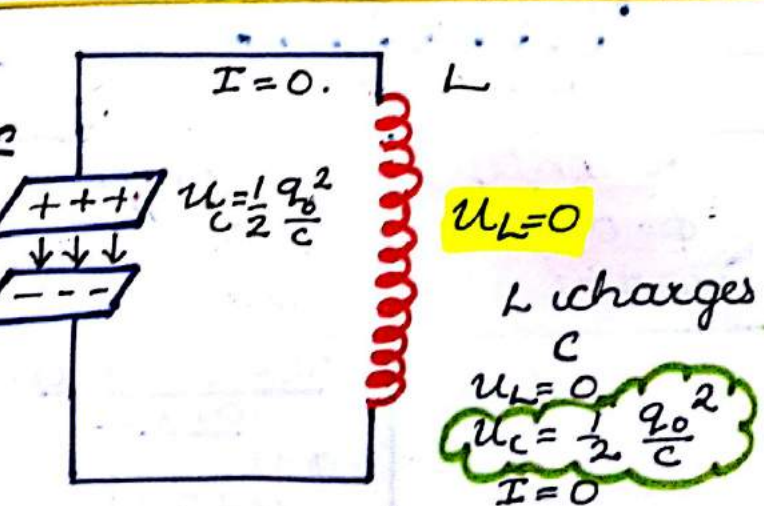 I = 0.
L
+ + +
U_C = 1/2 q_0^2/C
U_L = 0
- - -
L charges
C
U_L = 0
U_C = 1/2 q_0^2/C
I = 0